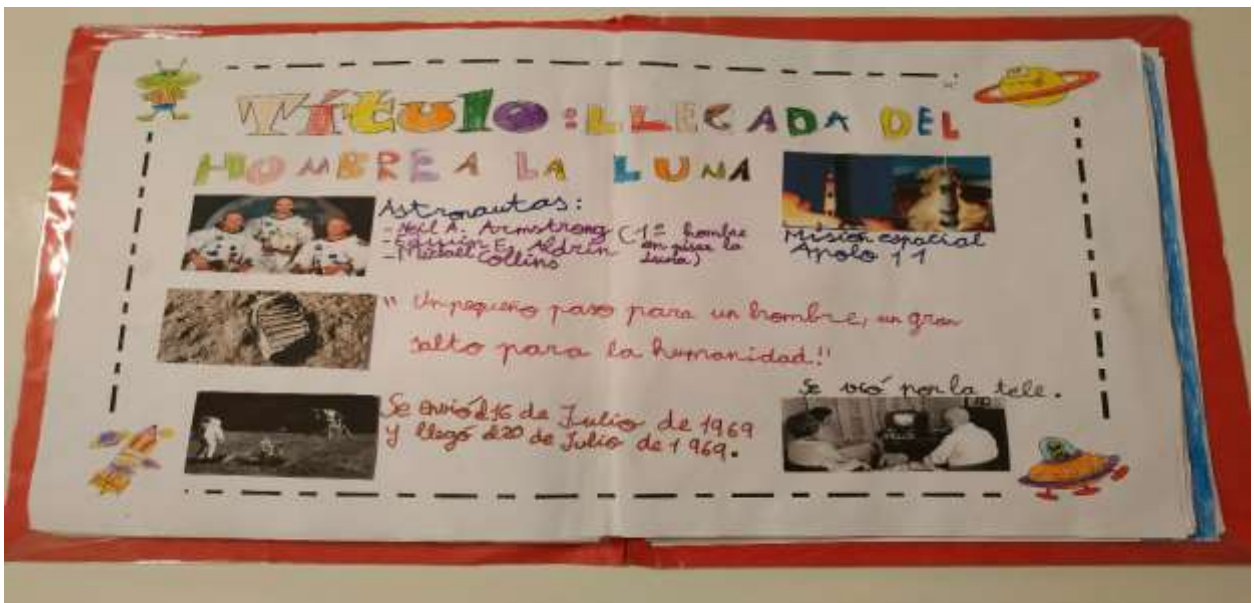 Título: LLEGADA DEL
HOMBRE A LA LUNA
Astronautas:
- Neil A. Armstrong (1º hombre
en pisar la
luna)
- E. Aldrin
- Michael Collins
Misión espacial
Apolo 11
" Un pequeño paso para un hombre, un gran
salto para la humanidad!!
Se vió por la tele.
Se envió el 16 de Julio de 1969
y llegó el 20 de Julio de 1969.